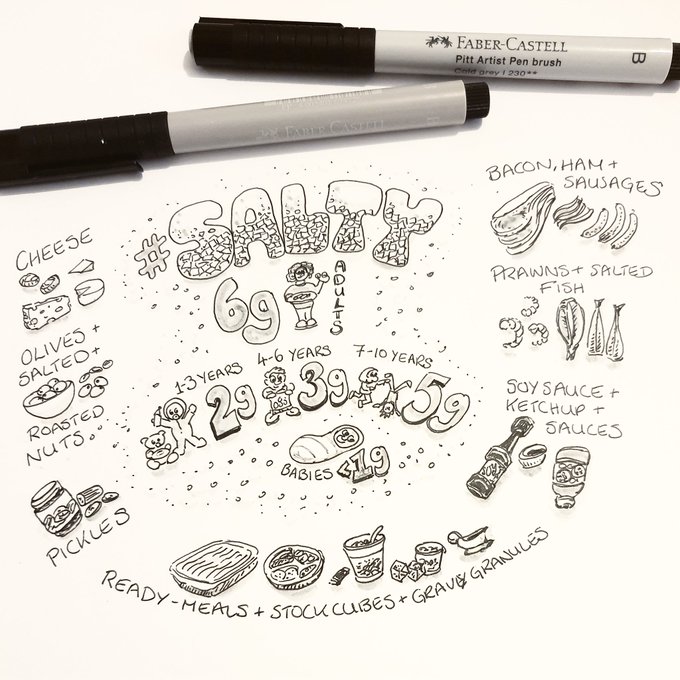 FABER-CASTELL
Pitt Artist Pen brush
Cold grey I 230**
B
FABER-CASTELL
#SALTY
6g
ADULTS
1-3 YEARS
2g
4-6 YEARS
3g
7-10 YEARS
5g
BABIES
<1g
CHEESE
OLIVES +
SALTED +
ROASTED
NUTS..
PICKLES
BACON, HAM +
SAUSAGES
PRAWNS + SALTED
FISH
SOY SAUCE +
KETCHUP +
SAUCES
SOY
READY-MEALS + STOCK CUBES + GRAVY GRANULES